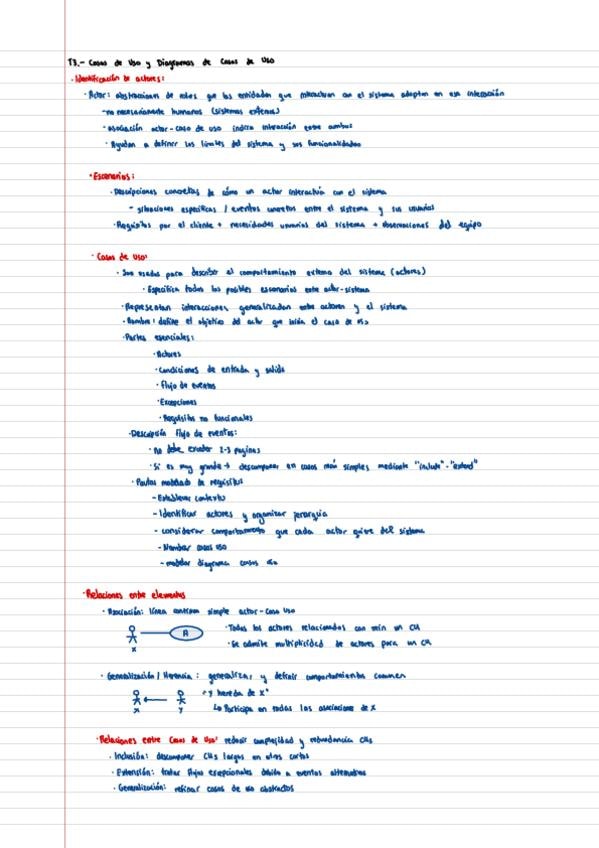 T3.- Casos de Uso y Diagramas de Casos de Uso
· Identificación de actores:
· Actor: abstracciones de roles que las entidades que interactuan con el sistema adoptan en esa interacción
- no necesariamente humanos (sistemas externos)
- asociación actor-caso de uso indica interacción entre ambos
· Ayudan a definir los límites del sistema y sus funcionalidades
· Escenarios:
· Descripciones concretas de cómo un actor interactúa con el sistema
- situaciones específicas / eventos concretos entre el sistema y sus usuarios
· Requisitos por el cliente + necesidades usuarios del sistema + observaciones del equipo
· Casos de Uso:
· Son usados para describir el comportamiento externo del sistema (actores)
· Especifica todos los posibles escenarios entre actor-sistema
· Representan interacciones generalizadas entre actores y el sistema
· Nombre: define el objetivo del actor que inicia el caso de uso
· Partes esenciales:
· Actores
· Condiciones de entrada y salida
· Flujo de eventos
· Excepciones
· Requisitos no funcionales
· Descripción flujo de eventos:
· No debe exceder 2-3 paginas
· Si es muy grande → descomponer en casos más simples mediante "include"-"extend"
· Pautas modelado de requisitos
- Establecer contexto
- Identificar actores y organizar jerarquía
- considerar comportamiento que cada actor quiere del sistema
- Nombrar casos uso
- modelar diagrama casos uso
· Relaciones entre elementos
· Asociación: línea continua simple actor-caso uso
· Todos los actores relacionados con mín un CU
A
x
· Se admite multiplicidad de actores para un CU
· Generalización / Herencia: generalizar y definir comportamientos comunes
"y hereda de x"
x y
Lo Participa en todas las asociaciones de x
· Relaciones entre Casos de Uso: reducir complejidad y redundancia CUs
· Inclusión: descomponer CUs largos en otros cortos
· Extensión: tratar flujos excepcionales debido a eventos alternativos
· Generalización: refinar casos de uso abstractos